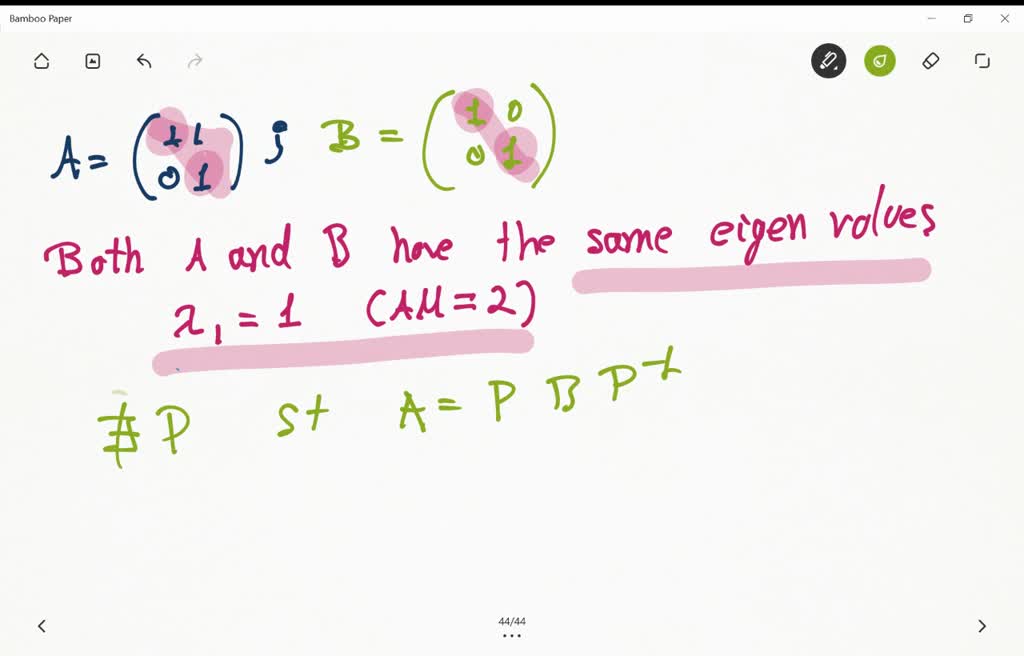 Bamboo Paper
A = (1 1
0 1) ; B = (1 0
0 1)
Both A and B have the same eigen values
λ₁ = 1 (AM = 2)
∄ P st A = P B P⁻¹
44/44